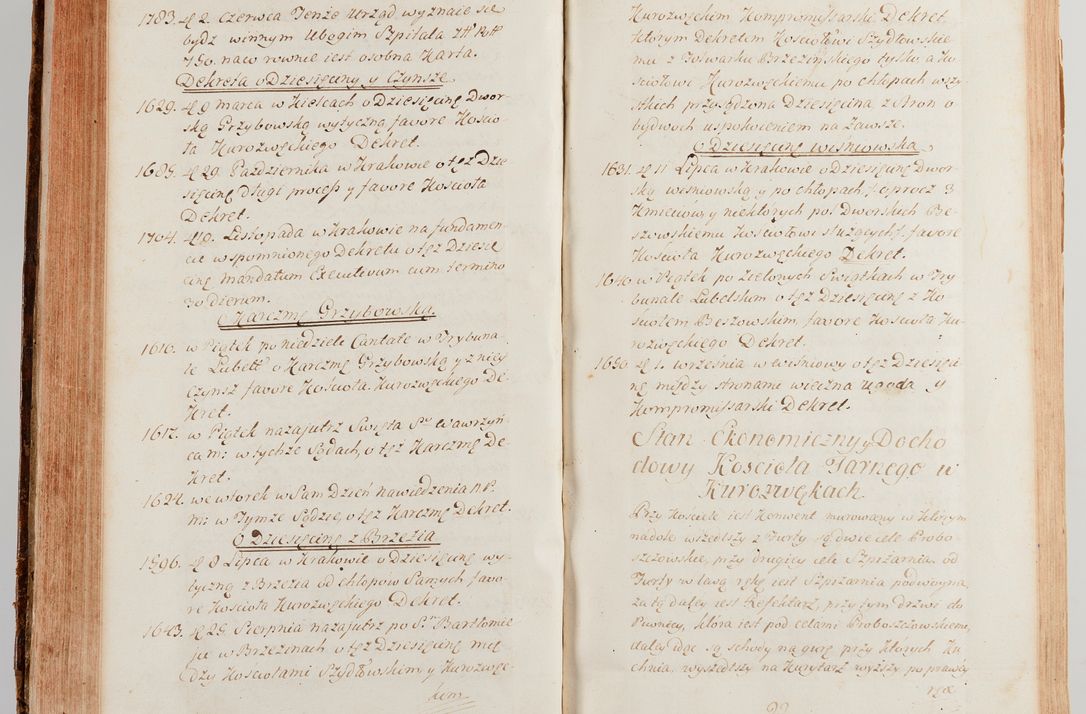 1783. d 2. Czerwca Tenże Urząd wyznaie się
bydź winnym Ubogim Szpitala
750. na co rownie iest osobna Karta.
Dekreta o Dziesięciny y Czynsze
1629. d 9 marca w Kielcach o Dziesięcinę Dwor-
ską Grzybowską wytyczną favore Kościo-
ła Kurozwęckiego Dekret.
1685. d 29. Pazdziernika w Krakowie o tęż Dzie
sięcinę Długi process y favore Kościoła
Dekret.
1704. d 10. Listopada w Krakowie na fundamen-
cie wspomnionego Dekretu o tęż Dziesię
cinę mandatum Executivum cum termino
30 dierum.
O Karczmę Grzybowską.
1616. w Piątek po niedzieli Cantate w Trybuna
le Lubell o Karczmę Grzybowską y z niey
Czynsz favore Kościoła Kurozwęckiego De
kret.
1617. w Piątek nazajutrz Swięta S Wawrzyń-
ca m: w tychże Sądach, o tęż Karczmę De
kret.
1624. we wtorek w Sam Dzień nawiedzenia N. P.
m: w Tymże Sądzie, o tęż Karczmę Dekret.
O Dziesięcinę z Brzezia
1596. d 8 Lipca w Krakowie o Dziesięcinę wy-
tyczną z Brzezia od chłopow Samych favo-
re Kościoła Kurozwęckiego Dekret.
1643. d 25. Sierpnia nazajutrz po S Bartłomie
ju w Brzezinach o tęż Dziesięcinę mię
dzy Kościołami Szydłowskiem y Kurozwęc-
kim
Kurozwęckim Kompromissarski Dekret
którym Dekretem Kościołowi Szydłowskie-
mu z Folwarku Brzezińskiego tylko, a Ko-
ściołowi Kurozwęckiemu po chłopach wszy
stkich przysądzona Dziesięcina z stron o
bydwoch uspokoieniem na Zawsze.
O Dziesięcinę wiśniowską
1631. d 11 Lipca w Krakowie o Dziesięcinę Dwor-
ską wiśniowską y po chłopach, oprocz 3
Kmieciów, y niektórych pol Dworskich Be-
szowskiemu Kościołowi służących favore
Kościoła Kurozwęckiego Dekret.
1640. w Piątek po Zielonych Swiątkach w Try
bunale Lubelskim o tęż Dziesięcinę z Ko
ściołem Beszowskim, favore Kościoła Ku-
rozwęckiego Dekret.
1650. d 1. września w wiśniowy o tęż Dziesięci
nę między stronami wieczna ugoda y
Kompromissarski Dekret.
Stan Ekonomiczny y Docho
dowy Kościoła Farnego w
Kurozwękach.
Przy Kościele iest Konwent murowany w którym
na dole wszedłszy z Furty są dwie cele Probo-
szczowskie, przy drugiey cele Szpiżarnia. od
Furty w lewą rękę iest Szpiżarnia podwoyna,
za tą daley iest Refektarz, przy tym drzwi do
Piwnicy, która iest pod celami Proboszczowskiemi,
daley idąc są schody na gurę przy których Ku
chnia, wyszedłszy na Kurytarz wyższy po prawey
ręce